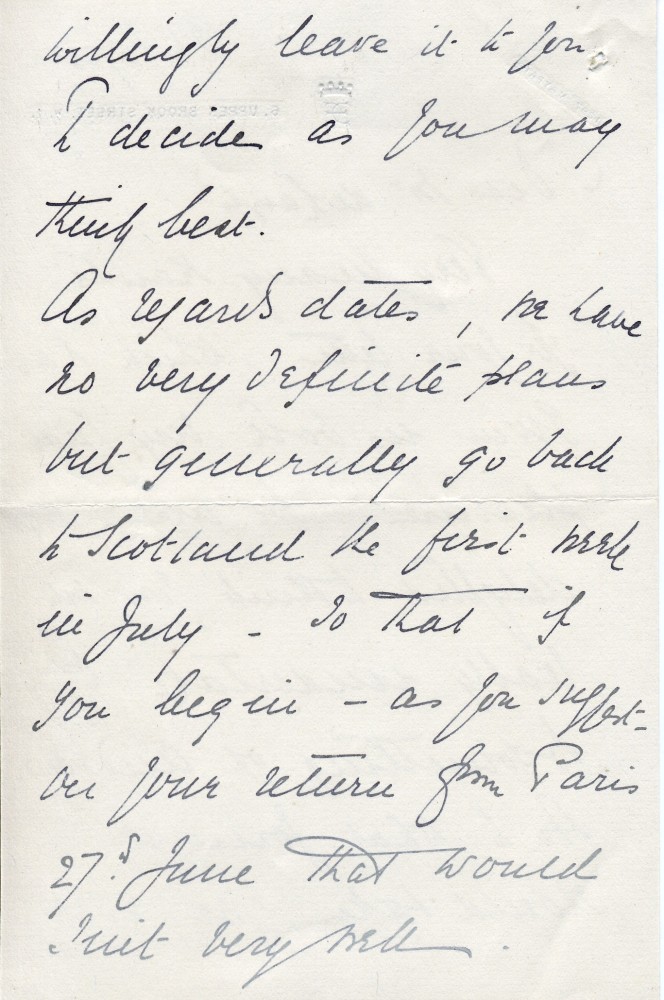 willingly leave it to you
I decide as you may
think best.
As regards dates, we have
no very definite plans
but generally go back
to Scotland the first week
in July - So that if
you begin - as you suggest -
on your return from Paris
27th June that would
suit very well.
6, UPPER BROOK STREET